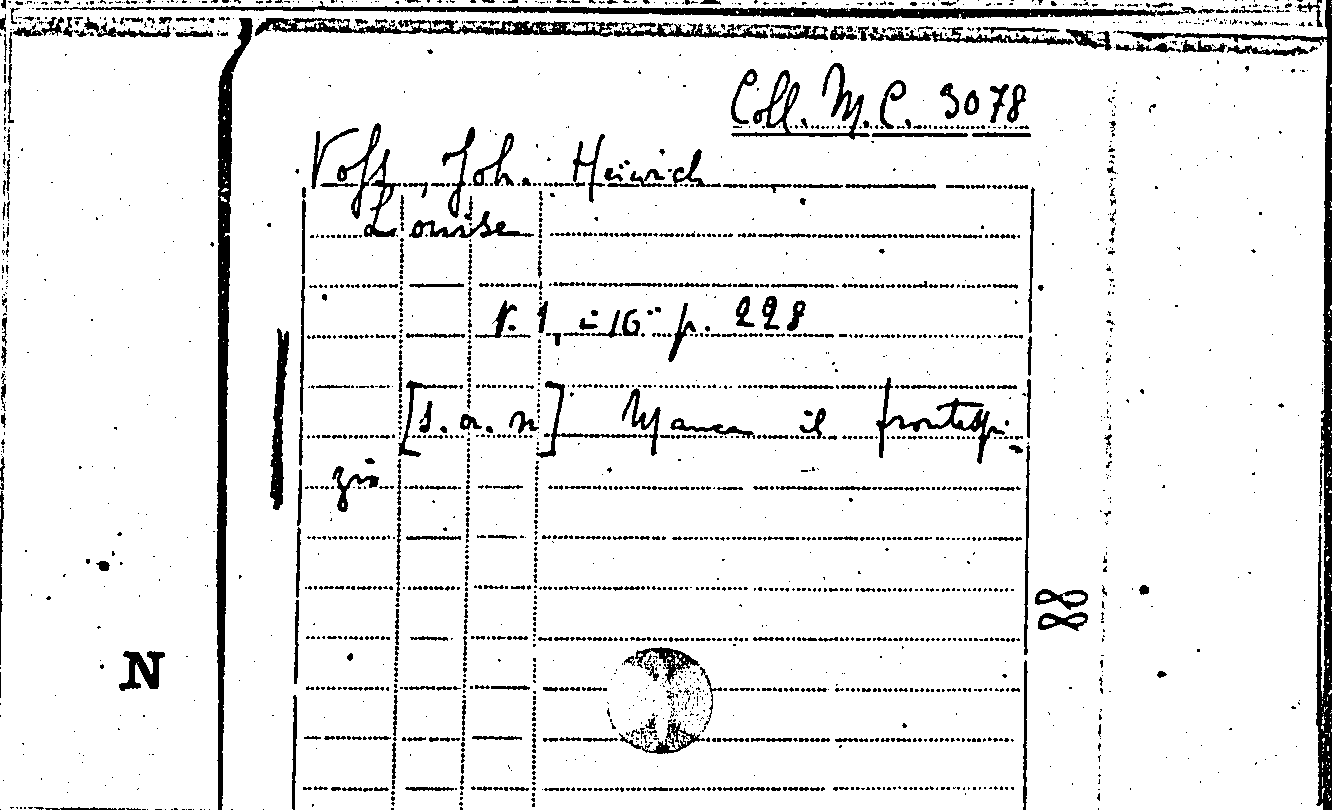 Coll. M.C. 3078
Voſs, Joh. Heinrich
Louise
V. 1, in-16° p. 228
[s.a.n] Manca il frontespi-
zio
88
N